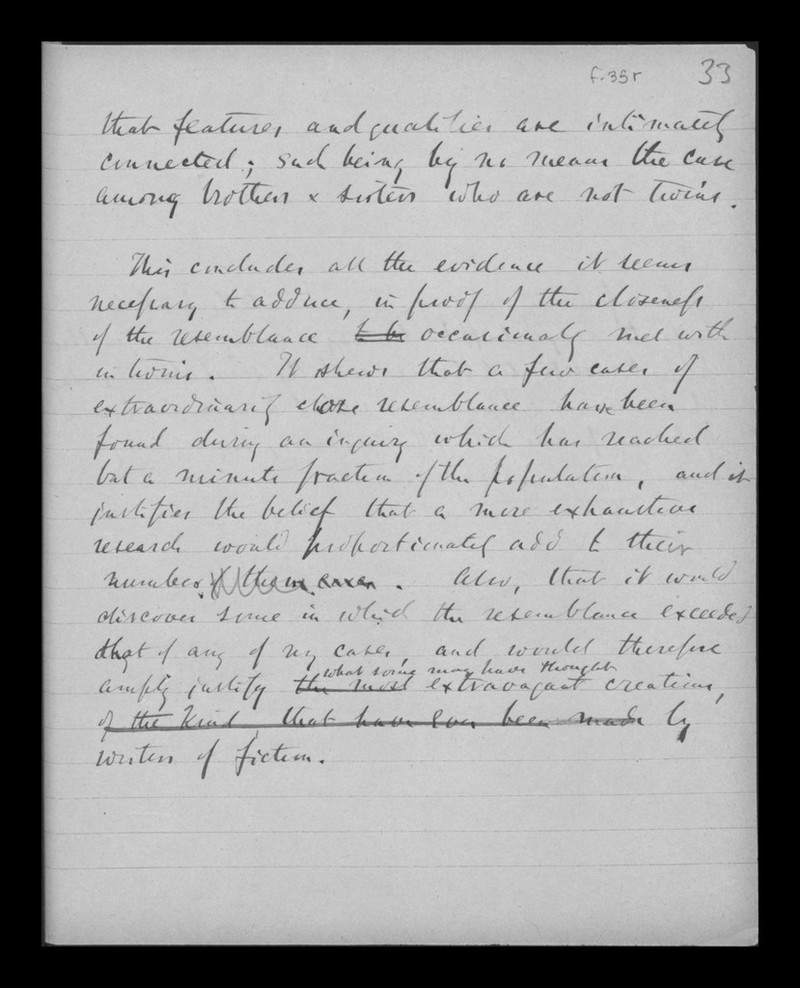 f.35r 33
that features and qualities are intimately
connected; such being by no means the case
among brothers & sisters who are not twins.
This concludes all the evidence it seems
necessary to adduce, in proof of the closeness
of the resemblance to be occasionally met with
in twins. It shews that a few cases of
extraordinarily close resemblance have been
found during an inquiry which has reached
but a minute fraction of the population, and it
justifies the belief that a more exhaustive
research would proportionately add to their
number. Also, that it would
discover some in which the resemblance exceeded
that of any of my cases, and would therefore
what some may have thought
amply justify the most extravagant creations,
of the kind, that have ever been made by
writers of fiction.